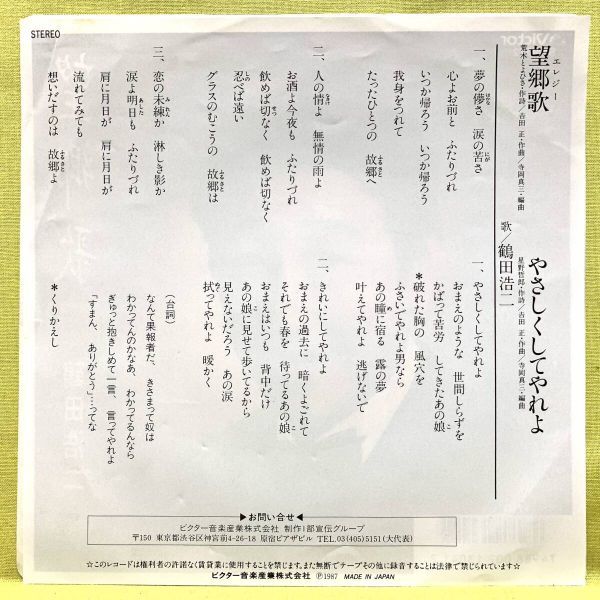 STEREO
望郷歌
エレジー
荒木とよひさ・作詩／吉田 正・作曲／寺岡真三・編曲
一、夢の儚さ 涙の苦さ
心よお前と ふたりづれ
いつか帰ろう いつか帰ろう
我身をつれて
たったひとつの 故郷へ
二、人の情よ 無情の雨よ
お酒よ今夜も ふたりづれ
飲めば切なく 飲めば切なく
忍べば遠い
グラスのむこうの 故郷は
三、恋の未練か 淋しき影か
涙よ明日も ふたりづれ
肩に月日が 肩に月日が
流れてみても
想いだすのは 故郷よ
歌／鶴田浩二
やさしくしてやれよ
星野哲郎・作詩／吉田 正・作曲／寺岡真三・編曲
一、やさしくしてやれよ
おまえのような 世間しらずを
かばって苦労 してきたあの娘
*破れた胸の 風穴を
ふさいでやれよ男なら
あの瞳に宿る 露の夢
叶えてやれよ 逃げないで
二、きれいにしてやれよ
おまえの過去に 暗くよごれて
それでも春を 待ってるあの娘
おまえはいつも 背中だけ
あの娘に見せて歩いてるから
見えないだろう あの涙
拭ってやれよ 暖かく
（台詞）
なんて果報者だ、きさまって奴は
わかってんのかなあ、わかってるんなら
ぎゅっと抱きしめて一言、言ってやれよ
「すまん、ありがとう」…ってな
*くりかえし
▶お問い合せ◀
ビクター音楽産業株式会社 制作1部宣伝グループ
〒150 東京都渋谷区神宮前4-26-18 原宿ピアザビル TEL.03(405)5151(大代表)
☆このレコードは権利者の許諾なく賃貸業に使用することを禁じます。また無断でテープその他に録音することは法律で禁じられています☆
ビクター音楽産業株式会社 Ⓟ1987 MADE IN JAPAN